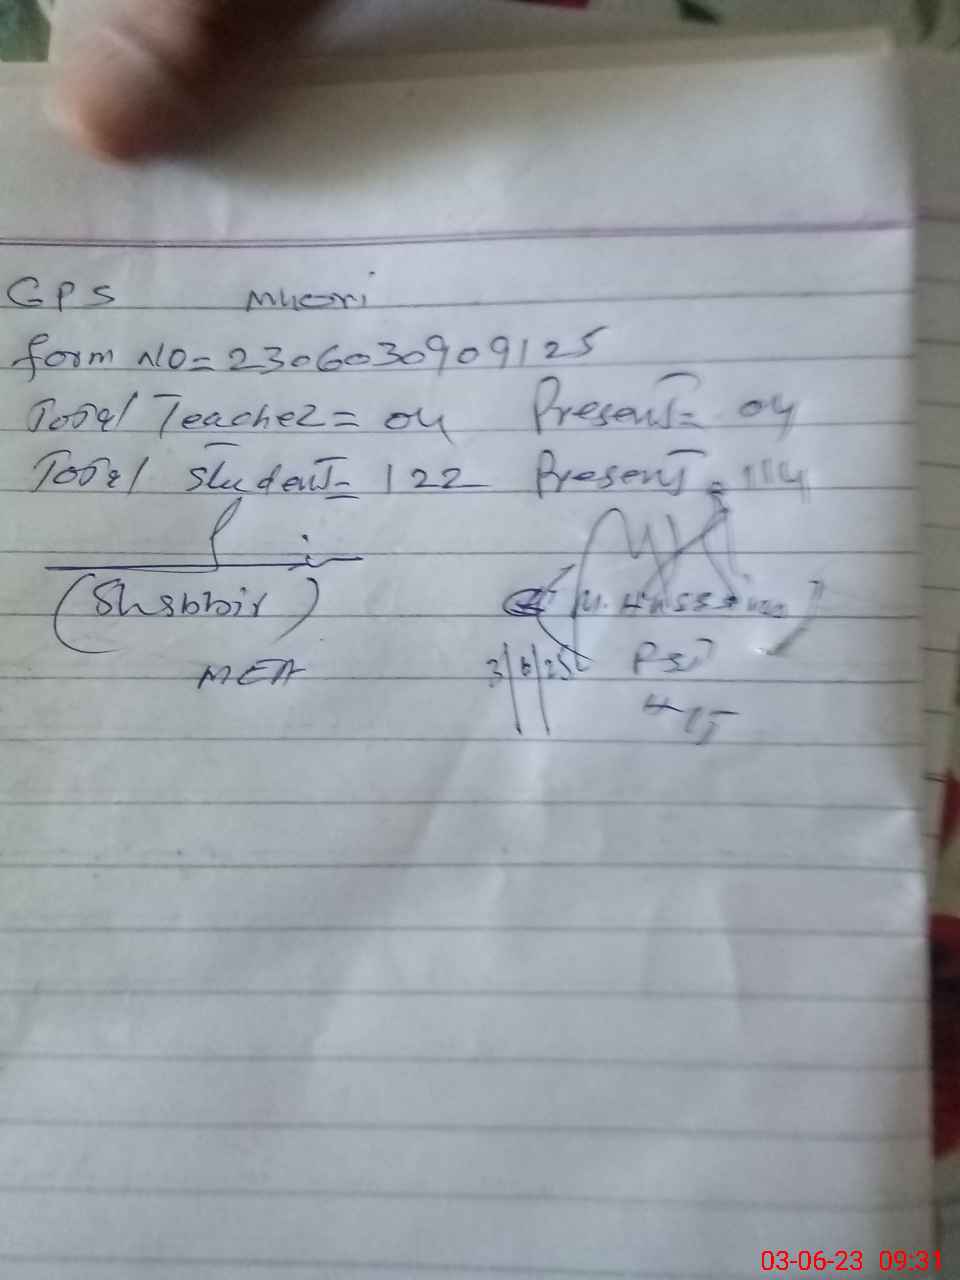 GPS Mhori
form NO = 2306030909125
Total Teacher = 04 Present = 04
Total Student = 122 Present = 114
(Shabbir)
M. Hussain
MEA
3/6/23
PST
03-06-23 09:31